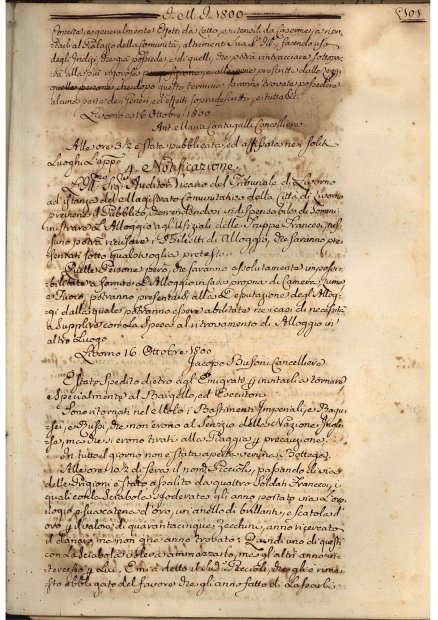 J. M. J. 1800
coperte, e generalmente Effetti da Letto, e utensili da Caserme, a ripor
tarli al Palazzo della Comunità, altrimenti
degli Indizj che già possiede, e di quelli, che potrà rintracciare
alla più rigorosa e alle pene prescritte dalle Leggi
quelle persone, che dopo questo termine saranno trovate possedere
alcuna parte de' Generi, ed effetti sopradescritti, e tutto &c.
Livorno 16 Ottobre 1800
Ant. Maria Cantagalli Cancelliere
Alle ore 3½ è stata pubblicata, ed affissata nei soliti
Luoghi l'app.
4. Notificazione
Ill.mo Sig. Auditor Vicario del Tribunale di Livorno
ad istanza del Magistrato Comunitativo della Città di Livorno
previene il Pubblico, che rendendosi indispensabile di Sommi
nistrare l'Alloggio agl'Ufiziali delle Truppe Francesi, nes
suno potrà ricusare i Biglietti di Alloggio, che saranno pre
sentati sotto qualsivoglia pretesto.
Quelle Persone però, che saranno assolutamente impossi
bilitate a fornire l'Alloggio in Casa propria di Camera, Lume
e Fuoco, potranno presentarsi alla Deputazione degli Allog
gi dalla quale potranno essere abilitate nei casi di necessità
a Supplire con la Spesa al ritrovamento di Alloggio in
altro Luogo.
Livorno 16. Ottobre 1800
Jacopo Busoni Cancelliere
È stato Spedito dietro agl'Emigrati per invitarli a tornare
e Specialmente al Bargello, ed Esecutori.
Sono ritornati nel Molo i Bastimenti Imperiali, e Ragu
sei, e Russi, che non erano al Servizio della Nazione Ingle
se, ma che si erono tirati alla Piaggia per precauzione.
In tutto il giorno non è stata aperta veruna Bottega.
Alle ore 10½ di sera il nom. Piccioli, passando di via
delle Prigioni è stato assalito da quattro Soldati Francesi, i
quali con la Sciabola Sfoderata gli anno portato via l'oro
logio, e sua catena d'oro, un anello di brillanti, e scatola d
oro per il valore di quarantacinque Zecchini, anno ricercato
il danaro, ma non gne anno trovato: Quindi uno di questi
con la Sciabola voleva ammazzarlo, ma gl'altri anno in
tercesso per Lui. E mi à detto il Sud.o Piccioli, che gli è rima
sto obbligato del favore che gli anno fatto di Lassarli